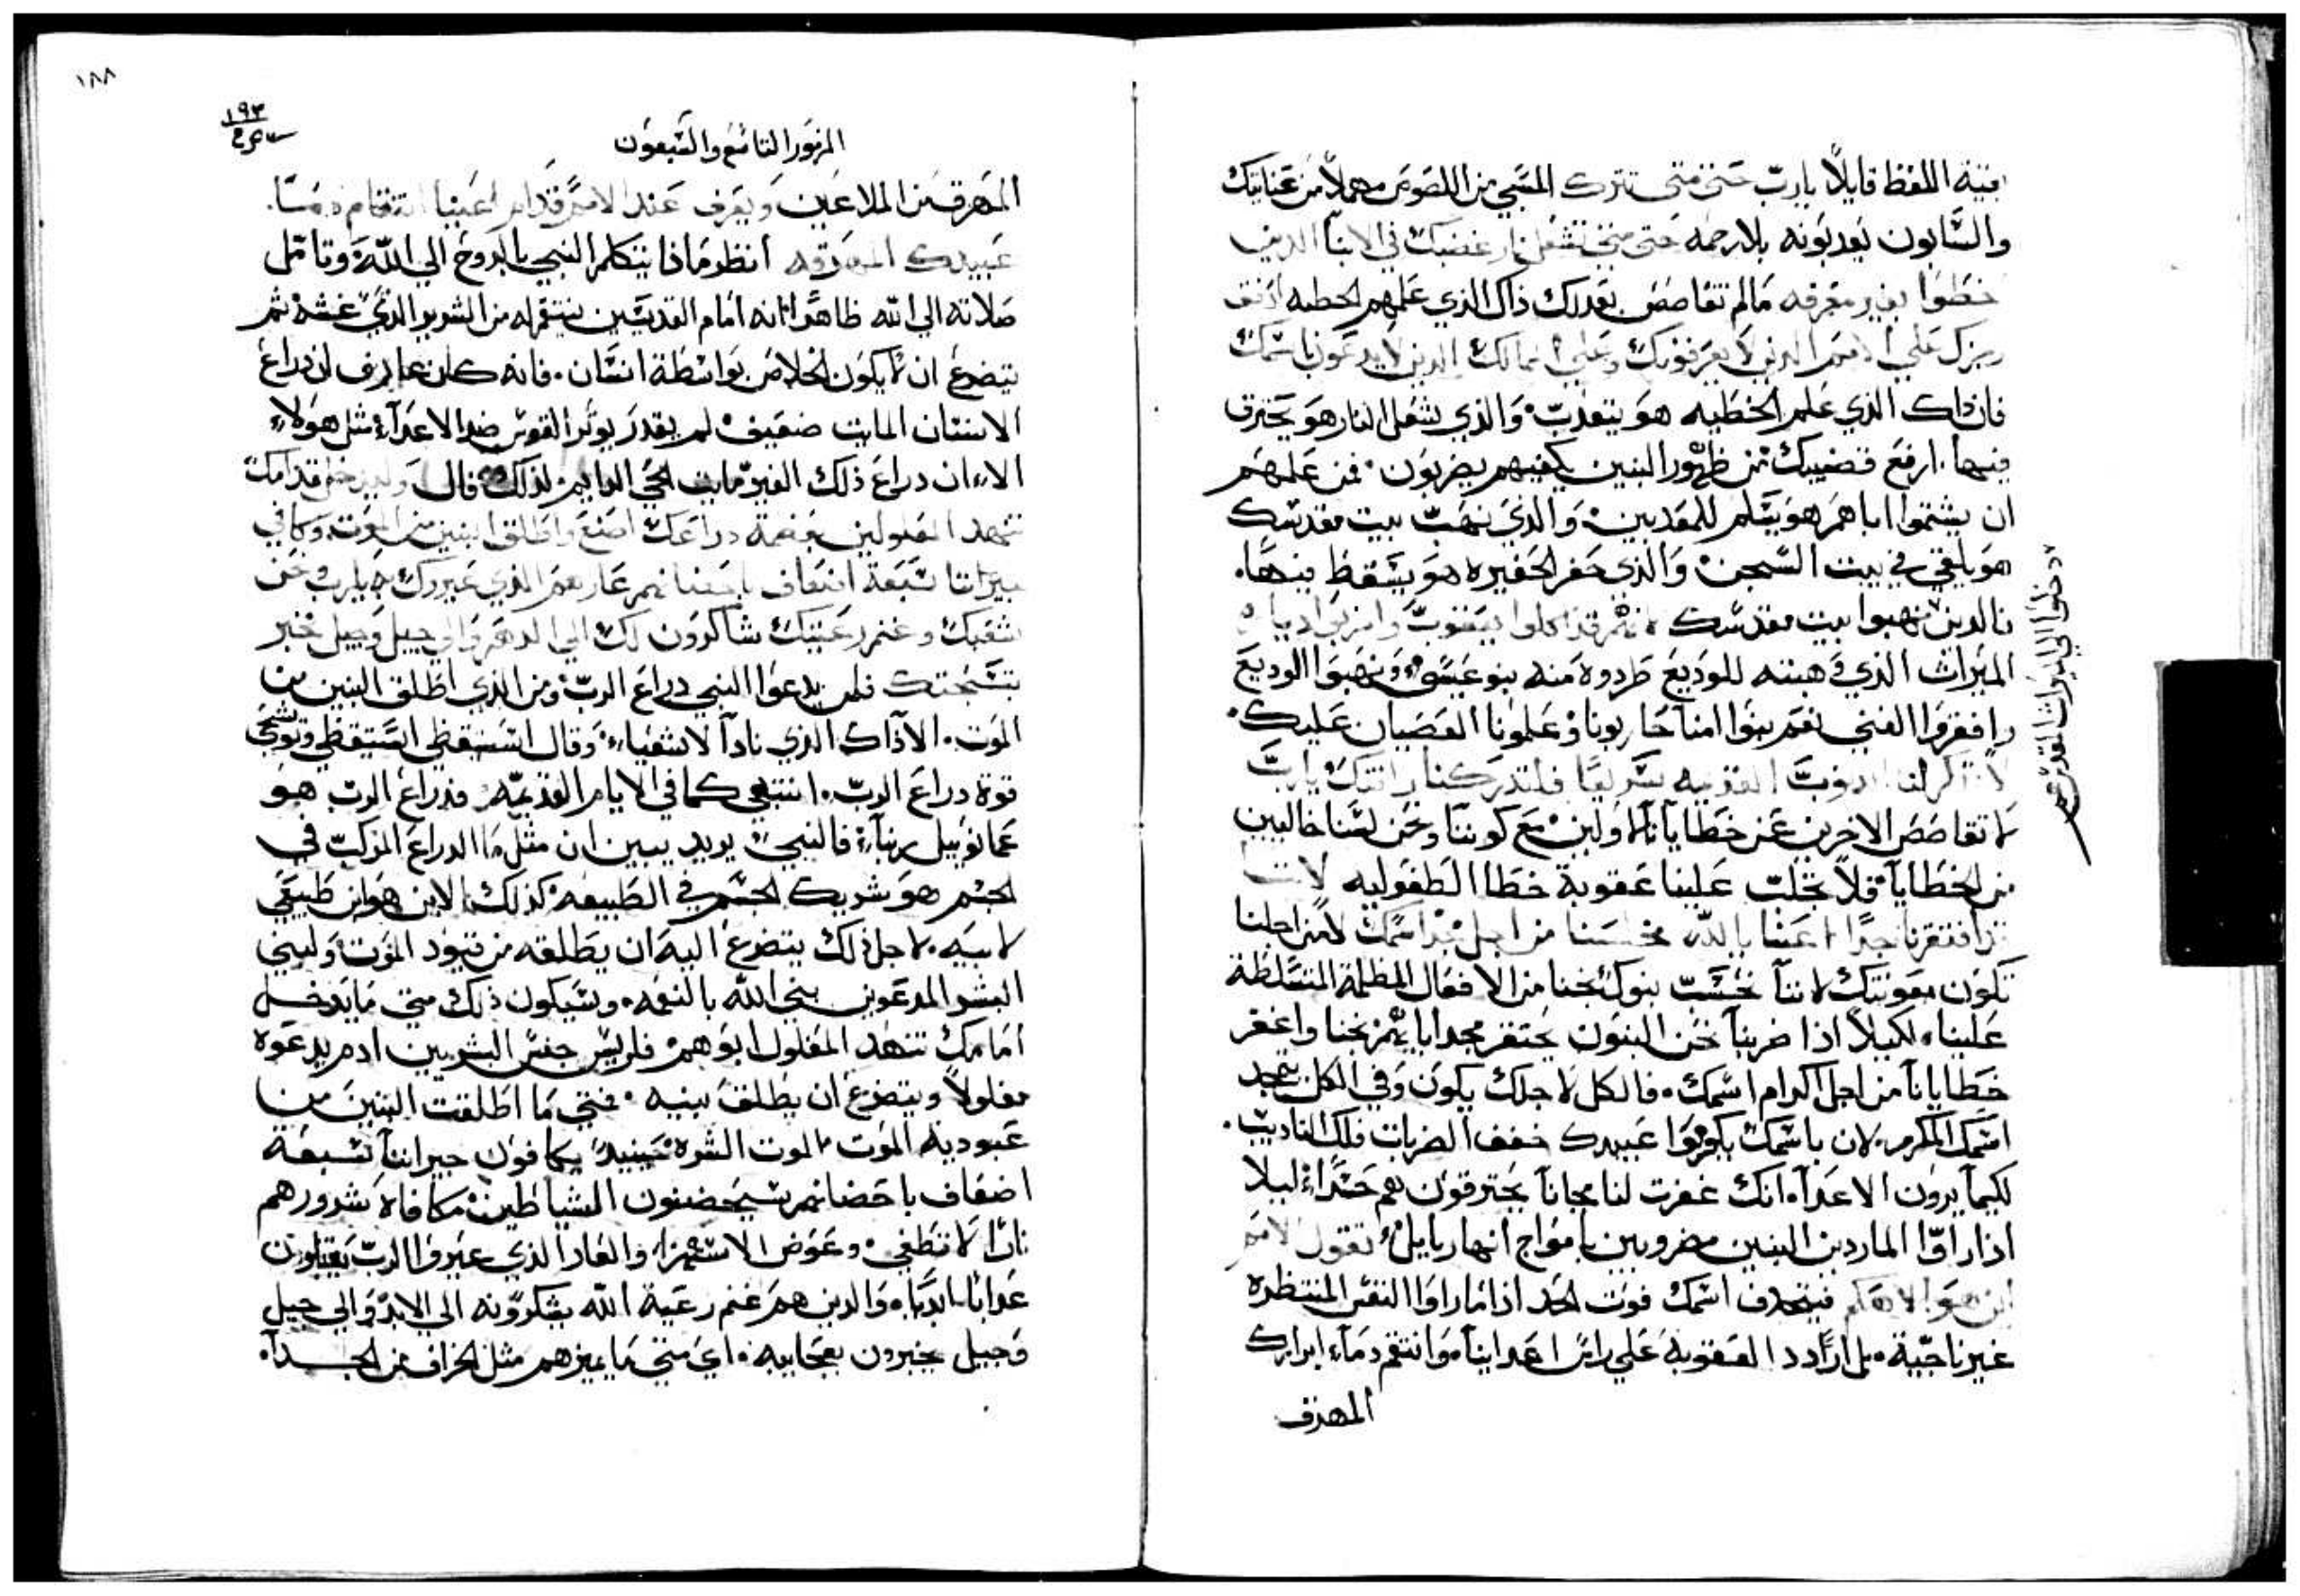 فيه اللفظ قايلاً يارب حتى متى تترك المسبي من اللصوص مهملاً من عنايتك
والسابون يعدبونه بلا رحمه حتى متى تشعل نار غضبك في الابنآ الدين
خطوا بغير معرفه مالم تقاصص بعدلك ذاك الذي علمهم الخطيه
رجزك علي الامم الدين لا يعرفونك وعلي الممالك الدين لا يدعون باسمك
فان ذاك الذي علم الخطيه هو يتعدب والذي يشعل النار هو يحترق
فيها. ارفع قضيبك من ظهور البنين يكفيهم يضربون فمن علمهم
ان يشتموا اباهم هو يتسلم للمعدبين والذي نهب بيت مقدسك
هو يلقي في بيت السجن والذي حفر الحفيره هو يسقط فيها.
فالدين نهبوا بيت مقدسك لانهم قد اكلوا يعقوب واخربوا دياره
الميراث الذي وهبته للوديع طردوه منه بنو عيسو ونهبوا الوديع
وافقروا الغني نعم بنوا امنا حاربونا وعلمونا العصيان عليك
لا تذكر لنا ذنوب القديمه سريعًا فلتدركنا رافتك يارب
لا تقاصص الاخرين عن خطايانا الاولين مع كوننا ونحن لسنا خاليين
من الخطايا فلا تجلب علينا عقوبة خطا الطفوليه لاننا
قد افتقرنا جدًا اعنا ياالله مخلصنا من اجل مجد اسمك لا من اجلنا
تكون معونتك لاننا نحسب بنوك نجنا من الافعال المظلمة المتسلطة
علينا. لكيلا اذا ضربنا نحن البنون يحتقر مجد ابانا نجنا واغفر
خطايانا من اجل اكرام اسمك. فالكل لاجلك يكون وفي الكل يتمجد
اسمك المكرم. لان باسمك يكرموا عبيدك خفف الضربات فلك التاديب.
لكيما يرون الاعدآ انك غفرت لنا مجانآ يحترقون بهم حسدًا. ليلا
اذا راوا الماردين البنين مضروبين بامواج انهار بابل تقول الامم
اين هو الاههم فيتجدف اسمك فوق الحد اذا ما راوا النفس المنتظره
غير ناجيه بل اردد العقوبة علي راس اعداينا وانتقم دمآ ابرارك
المهرق
دخلوا الي ميراث المقدس
١٨٨
١٩٣
المزمور التاسع والسبعون
المهرق من الملاعين ويعرف عند الامم قدام اعيننا انتقام دم
عبيدك المهروقه انظر ماذا يتكلم النبي بالروح الي الله وتامّل
صلاته الي الله ظاهرًا انه امام القديسين ينتقم له من الشرير الذي غشه ثم
يتضرع ان لا يكون الخلاص بواسطة انسان. فانه كان عارف ان دراع
الانسان المايت ضعيف لم يقدر يوتر القوس ضد الاعدآ مثل هولاء
الا ان دراع ذلك الغير مايت الحي الدايم لذلك قال وليدخل قدامك
تنهد المغلولين بعضمة دراعك اصنع واطلق البنين من الموت وكافي
جيراننا سبعة اضعاف باحضانهم عارهم الذي عيروك به يارب ونحن
شعبك وغنم رعيتك شاكرون لك الي الدهر والي جيل وجيل نخبر
بتسبحتك فلمن يدعوا النبي دراع الرب ومن الذي اطلق البنين من
الموت. الا ذاك الذي نادآ لاشعياء وقال استيقظي استيقظي وتوشحي
قوة دراع الرب. انتبهي كما في الايام القديمه فدراع الرب هو
عمانوييل ربنا فالنبي يريد يبين ان مثل ما الدراع المركب في
الجسم هو شريك الجسم في الطبيعه كذلك الابن هو ابن طبيعي
لابيه. لاجل ذلك يتضرع اليه ان يطلقه من قيود الموت ولبني
البشر المدعوين بني الله بالنعمه. وسيكون ذلك متى ما يدخل
امامك تنهد المغلول ابوهم فلريس جنس البشريين ادم يدعوه
مغلولاً ويتضرع ان يطلق بنيه. فمتى ما اطلقت البنين من
عبودية الموت الموت الشره حينيدٍ يكافون جيراننا سبعة
اضعاف باحضانهم سيحضنون الشياطين مكافاة شرورهم
نارًا لا تنطفي. وعوض الاستهزا والعار الذي عيروا الرب يقبلون
عدابًا ابديًا. والدين هم غنم رعية الله يشكرونه الي الابد والي جيل
وجيل يخبرون بعجايبه. اي متى ما يميزهم مثل الخراف من الجدآ.